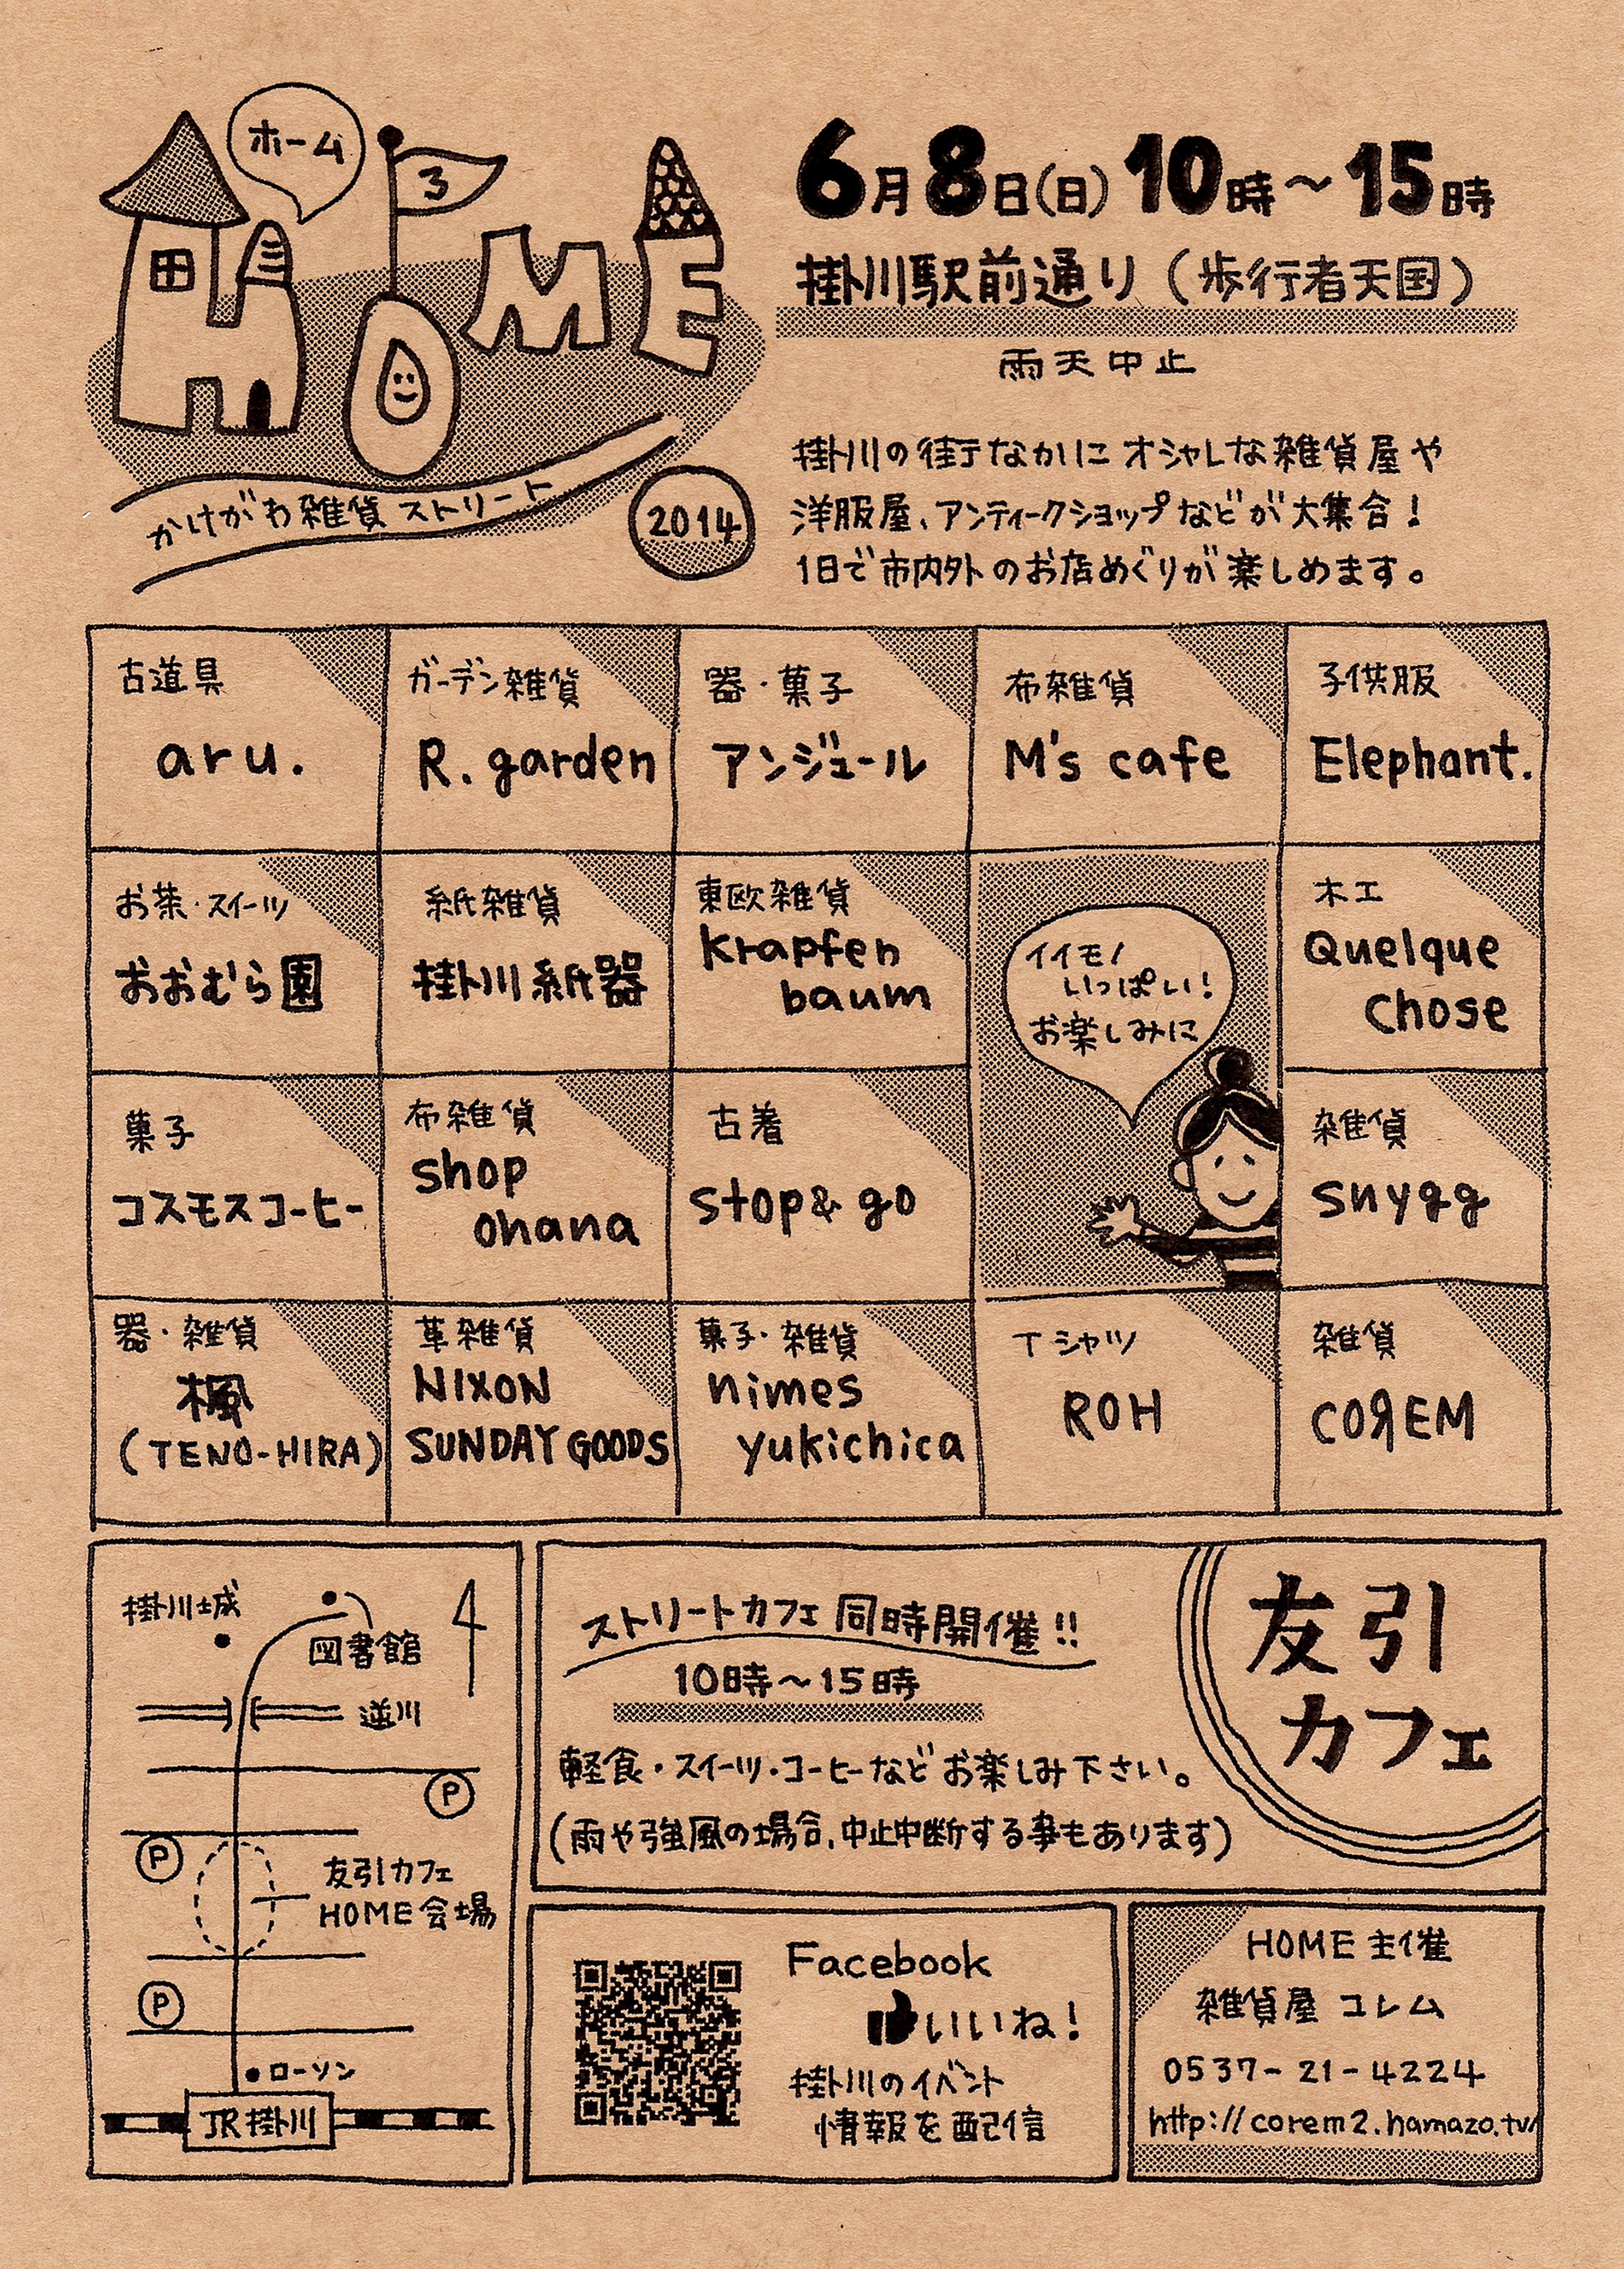 ホーム
3
HOME
かけがわ雑貨ストリート
2014
6月8日(日)10時～15時
掛川駅前通り(歩行者天国)
雨天中止
掛川の街なかにオシャレな雑貨屋や
洋服屋、アンティークショップなどが大集合!
1日で市内外のお店めぐりが楽しめます。
古道具
aru.
ガーデン雑貨
R. garden
器・菓子
アンジュール
布雑貨
M's cafe
子供服
Elephant.
お茶・スイーツ
おおむら園
紙雑貨
掛川紙器
東欧雑貨
krapfen
baum
イイモノ
いっぱい!
お楽しみに
木工
Quelque
Chose
菓子
コスモスコーヒー
布雑貨
shop
ohana
古着
stop & go
雑貨
snygg
器・雑貨
楓
(TENO-HIRA)
革雑貨
NIXON
SUNDAY GOODS
菓子・雑貨
nimes
yukichica
Tシャツ
ROH
雑貨
COЯEM
掛川城
図書館
逆川
P
P
友引カフェ
HOME会場
P
ローソン
JR掛川
ストリートカフェ同時開催!!
10時～15時
軽食・スイーツ・コーヒーなどお楽しみ下さい。
(雨や強風の場合、中止中断する事もあります)
友引
カフェ
Facebook
いいね!
掛川のイベント
情報を配信
HOME主催
雑貨屋 コレム
0537-21-4224
http://corem2.hamazo.tv/